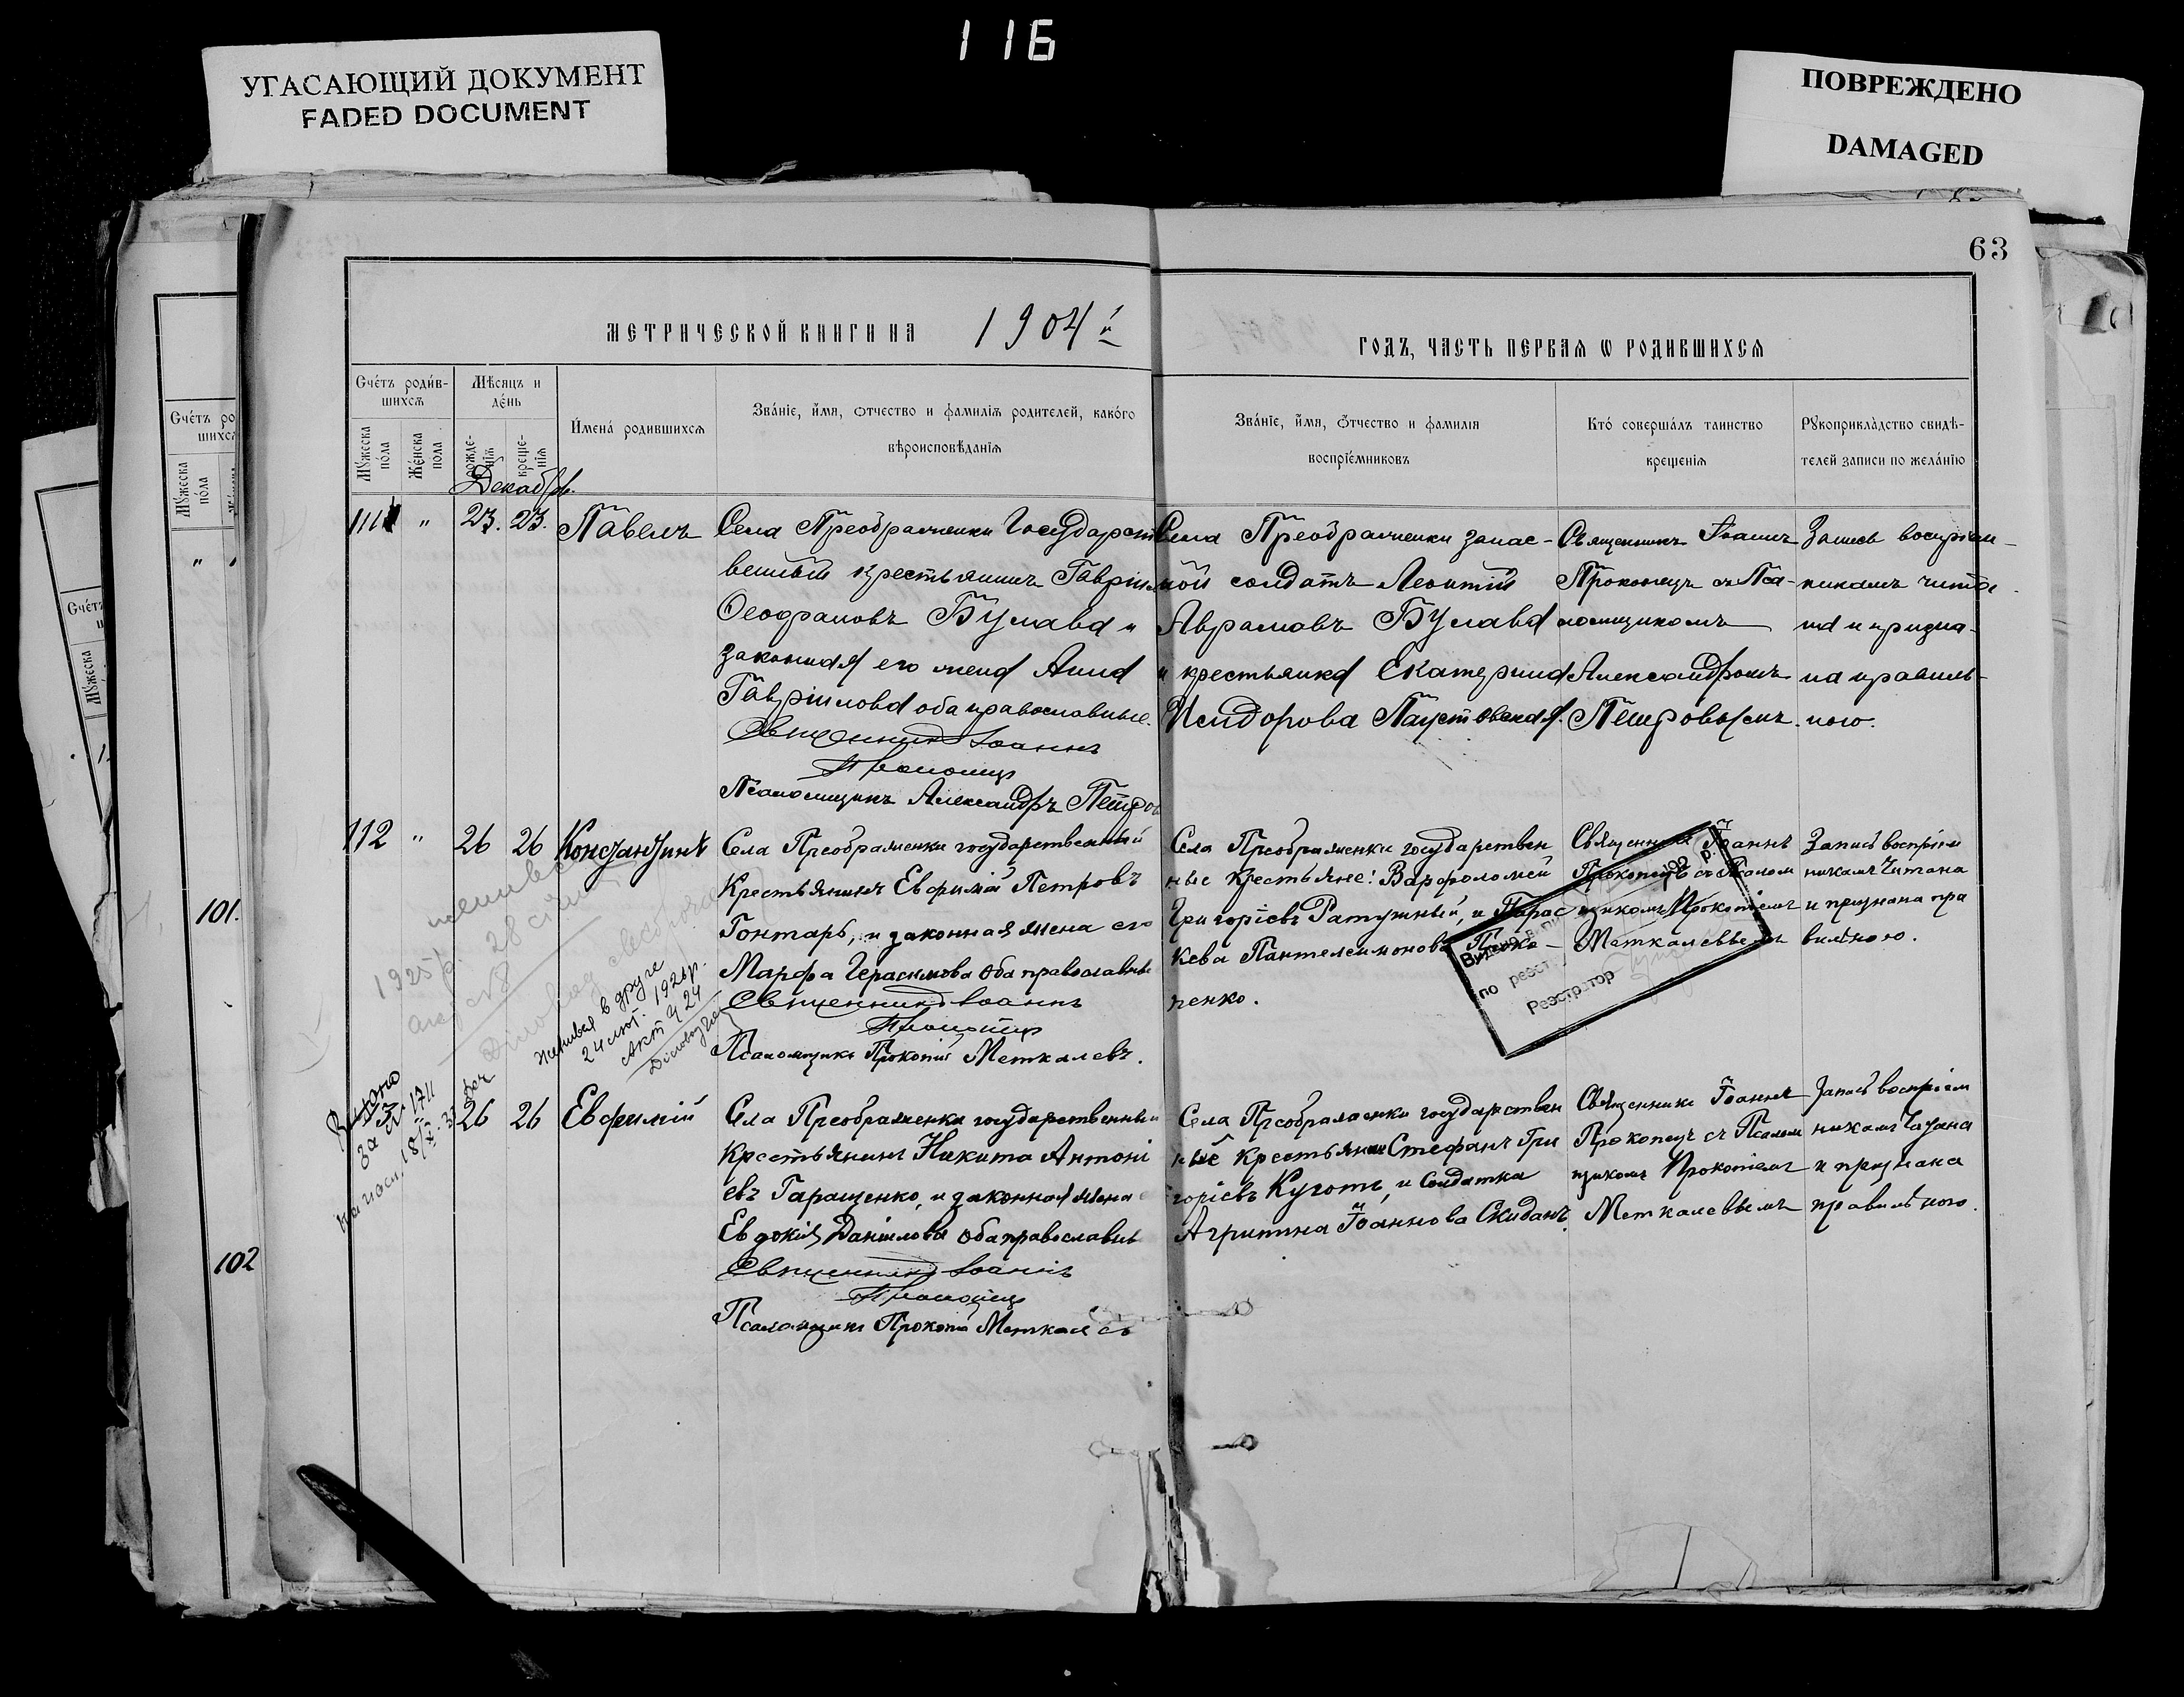 116
УГАСАЮЩИЙ ДОКУМЕНТ
FADED DOCUMENT
ПОВРЕЖДЕНО
DAMAGED
63
МЕТРИЧЕСКОЙ КНИГИ НА 1904й
ГОДЪ, ЧАСТЬ ПЕРВАѦ Ѡ РОДИВШИХСѦ
Счéтъ роди́в-
шихсѧ
Мѣсяцъ и
дéнь
Мꙋ́жеска
пóла
Жéнска
пола
рожде-
нїѧ
креще-
нїѧ
И́мена́ родившихсѧ
Зва́нїе, и́мѧ, ѻтчество и фамилїѧ родителей, како́го
вѣроисповѣданїѧ
Зва́нїе, и́мѧ, ѻ́тчество и фамилїя
воспрїе́мниковъ
Ктó соверша́лъ таинство
крещенїѧ
Рꙋкоприкла̀дство свидѣ-
телей записи по жела́нїю
Счéтъ ро
шихсѧ
Мꙋ́жеска
пóла
Счéтъ
Мꙋ́жеска
101.
102
Декабрь
111 " 23. 23. Павелъ
Села Преображенки Государст
венный крестьянинъ Гавріил
Ѳеофановъ Булава и
законная его жена Анна
Гавріилова оба православные.
Священникъ Іоаннъ
Прокопецъ
Псаломщикъ Александръ Петров
Села Преображенки запас-
ной солдатъ Леонтій
Аврамовъ Булава
и крестьянка Екатерина
Исидорова Паустовская.
Священникъ Іоаннъ
Прокопецъ съ Пса-
ломщикомъ
Александромъ
Петровымъ.
Запись воспріем-
никамъ чита-
на и призна-
на правиль-
ною.
112 " 26 26 Константинъ
Села Преображенки государственный
Крестьянинъ Евфимій Петровъ
Гонтарь, и законная жена его
Марфа Герасимова Оба православные
Священникъ Іоаннъ
Прокопецъ
Псаломщикъ Прокопій Меткалевъ.
Села Преображенки государствен
ные Крестьяне: Варфоломей
Григоріевъ Ратушный, и Парас
кева Пантелеимонова
пенко.
Священникъ Іоаннъ
Прокопецъ съ Псалом
щикомъ Прокопіемъ
Меткалевымъ
Запись воспріем
никамъ Читана
и признана пра
вильною.
по реест
Реєстратор
1925 р. 28 січня
Женився в друге
24 лют. 1926 р.
Акт Ч 24
Видано
26 26 Евфимій
Села Преображенка государственный
Крестьянинъ Никита Антоні
евъ Гаращенко, и законная жена е
Евдокія Даніилова Оба православные
Священникъ Іоаннъ
Прокопецъ
Псаломщикъ Прокопій Меткалевъ
Села Преображенки государствен
ные Крестьяне Стефанъ Гри
горіевъ Куготь, и Солдатка
Агрипина Іоаннова Скиданъ.
Священникъ Іоаннъ
Прокопецъ съ Псалом
щикомъ Прокопіемъ
Меткалевымъ
Запись воспріем
никамъ Читана
и признана
правильною.